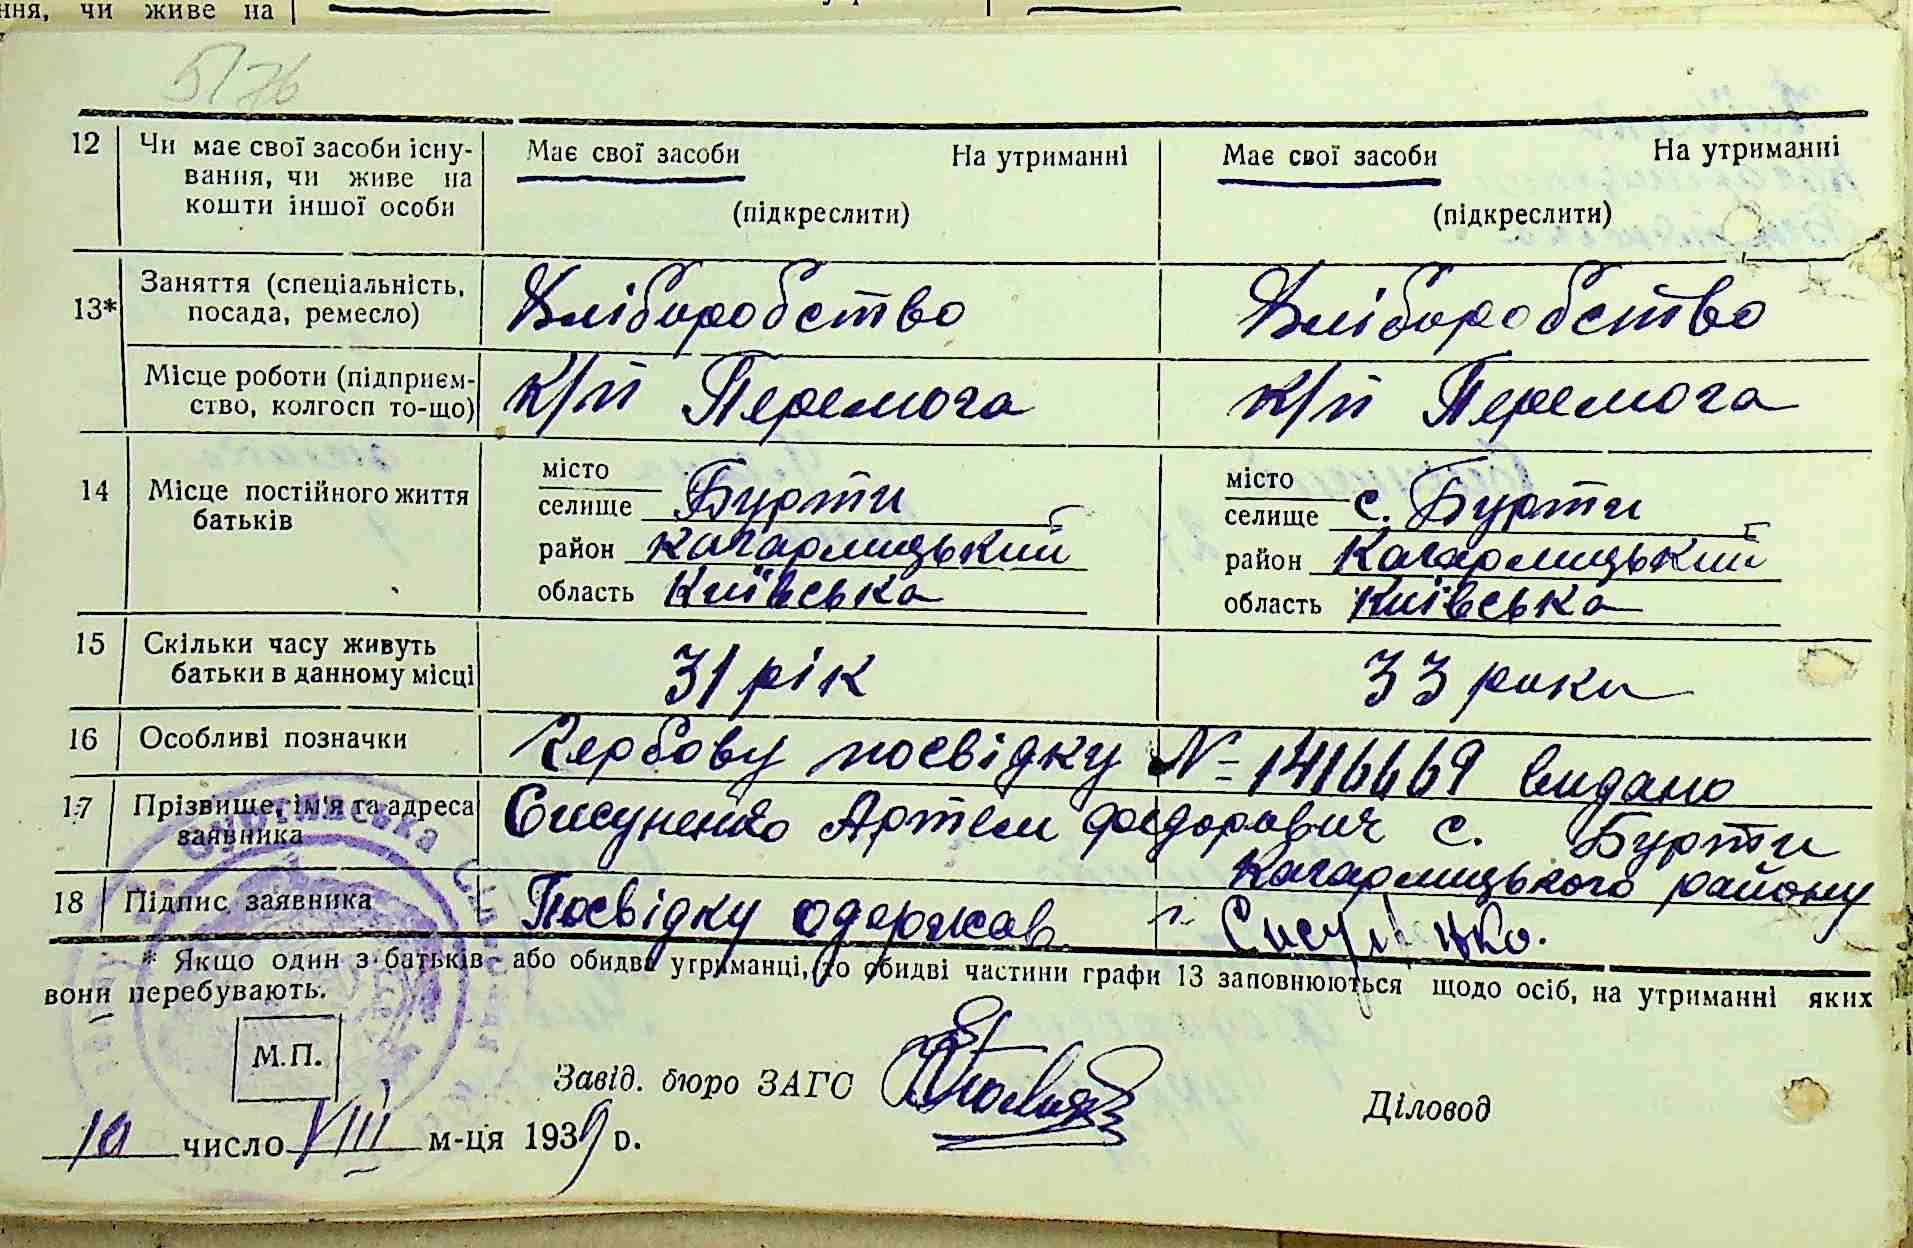 ння, чи живе на
5176
12 Чи має свої засоби існу- Має свої засоби На утриманні Має свої засоби На утриманні
вання, чи живе на
кошти іншої особи (підкреслити) (підкреслити)
13* Заняття (спеціальність, Хліборобство Хліборобство
посада, ремесло)
Місце роботи (підприєм- к/п Перемога к/п Перемога
ство, колгосп то-що)
14 Місце постійного життя місто місто
батьків селище Бурти селище с. Бурти
район Кагарлицький район Кагарлицький
область Київська область Київська
15 Скільки часу живуть 31 рік 33 роки
батьки в данному місці
16 Особливі позначки Гербову посвідку № 1416669 видано
17 Прізвище, ім'я та адреса Сисуненко Артем Федорович с. Бурти
заявника Кагарлицького району
18 Підпис заявника Посвідку одержав Сисуненко.
* Якщо один з батьків або обидва утриманці, то обидві частини графи 13 заповнюються щодо осіб, на утриманні яких
вони перебувають.
М.П.
Завід. бюро ЗАГС Діловод
10 число VIII м-ця 1939 р.